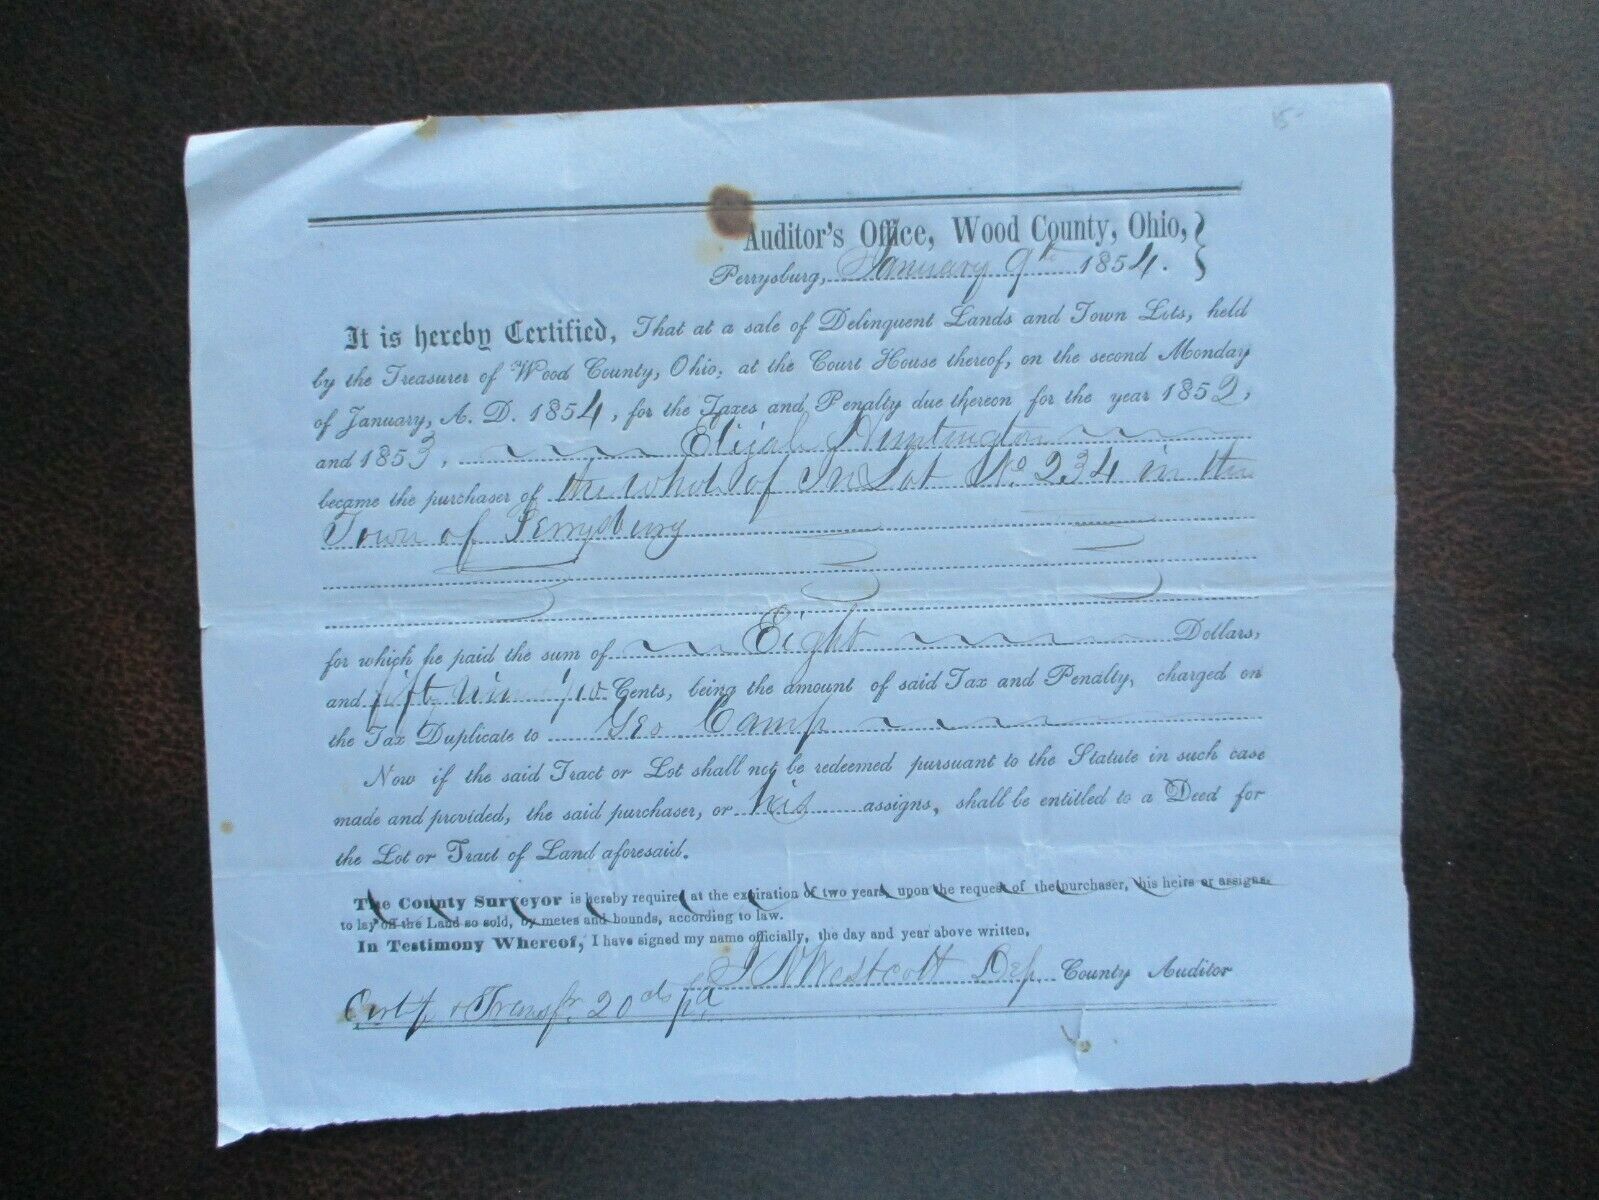 15-
Auditor's Office, Wood County, Ohio,
Perrysburg, January 9th 1854.
It is hereby Certified, That at a sale of Delinquent Lands and Town Lots, held
by the Treasurer of Wood County, Ohio, at the Court House thereof, on the second Monday
of January, A. D. 1854, for the Taxes and Penalty due thereon for the year 1852,
and 1853, Elijah Huntington
became the purchaser of the whole of In Lot No. 234 in the
Town of Perrysburg
for which he paid the sum of Eight Dollars,
and fifty nine Cents, being the amount of said Tax and Penalty, charged on
the Tax Duplicate to Geo Camp
Now if the said Tract or Lot shall not be redeemed pursuant to the Statute in such case
made and provided, the said purchaser, or his assigns, shall be entitled to a Deed for
the Lot or Tract of Land aforesaid.
The County Surveyor is hereby required at the expiration of two years, upon the request of the purchaser, his heirs or assigns,
to lay off the Land so sold, by metes and bounds, according to law.
In Testimony Whereof, I have signed my name officially, the day and year above written,
J N Westcott Dep. County Auditor
Certf & Transfr. 20 cts pd